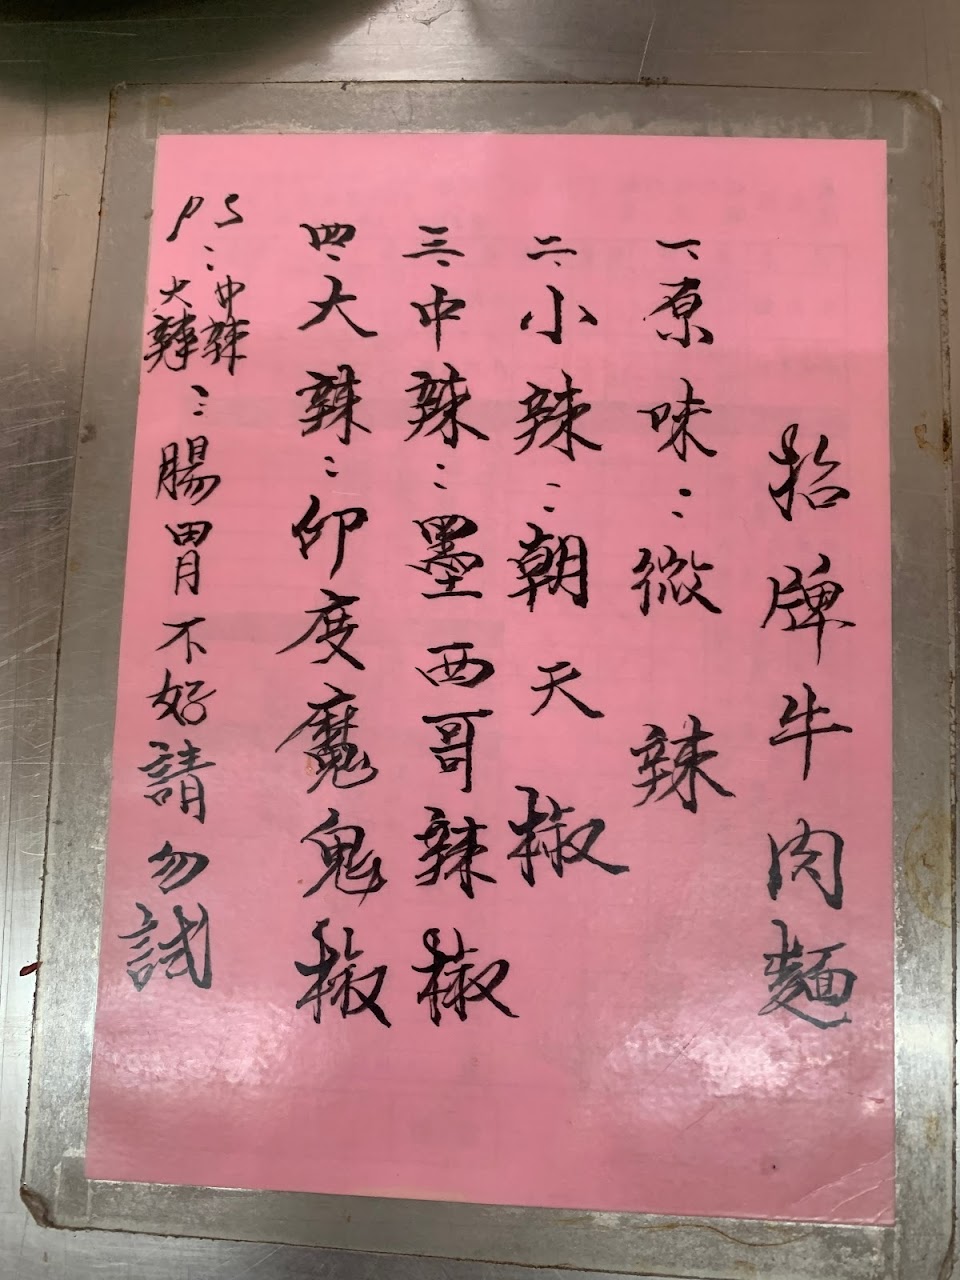 招牌牛肉麵
一、原味：微辣
二、小辣：朝天椒
三、中辣：墨西哥辣椒
四、大辣：印度魔鬼椒
PS：中辣大辣：腸胃不好請勿試